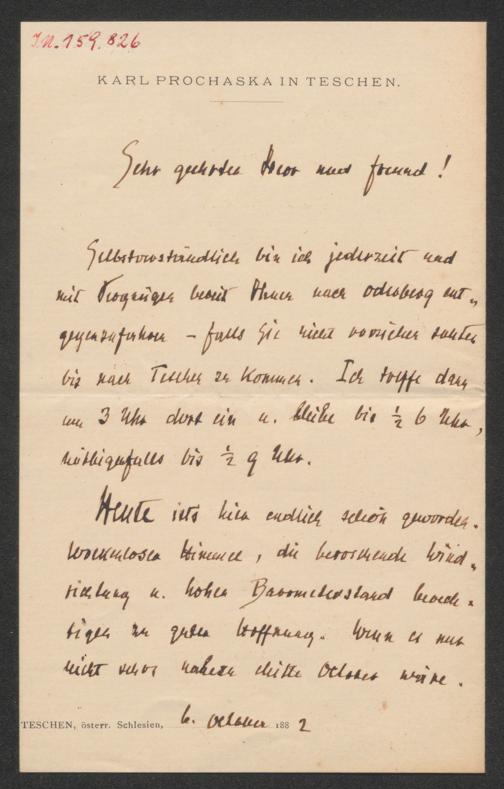 I.N. 159.826
KARL PROCHASKA IN TESCHEN.
Sehr geehrter Herr und Freund!
Selbstverständlich bin ich jederzeit und
mit Vergnügen bereit Ihnen nach Oderberg ent-
gegenzufahren – falls Sie nicht vorziehen sollten
bis nach Teschen zu kommen. Ich treffe dann
um 3 Uhr dort ein u. bleibe bis ½ 6 Uhr,
nöthigenfalls bis ½ 9 Uhr.
Heute ists hier endlich schön geworden.
Wolkenloser Himmel, die herrschende Wind-
richtung u. hoher Barometerstand berech-
tigen zu guter Hoffnung. Wenn es nur
nicht schon nahezu Mitte October wäre.
TESCHEN, österr. Schlesien, 6. October 1882